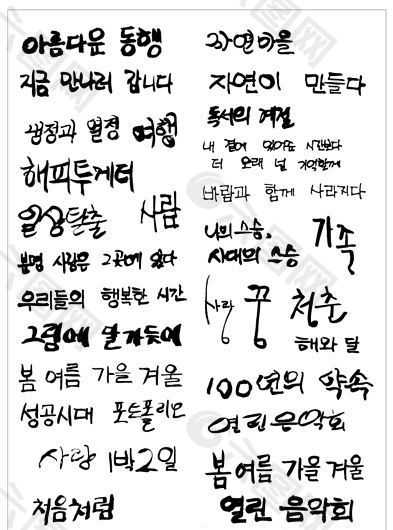 아름다운 동행
지금 만나러 갑니다
냉정과 열정 여행
해피투게더
일상탈출
사람
분명 사랑은 그곳에 있다
우리들의 행복한 시간
그림에 달가듯이
봄 여름 가을 겨울
성공시대 포트폴리오
사랑 1박2일
처음처럼
자연마을
자연이 만들다
독서의 계절
내 곁에 있어도 시간보다
더 오래 널 기억할께
바람과 함께 사라지다
나의스승,
시대의 스승
가족
사랑 꿈 청춘
해와 달
100년의 약속
열린음악회
봄 여름 가을 겨울
열린 음악회